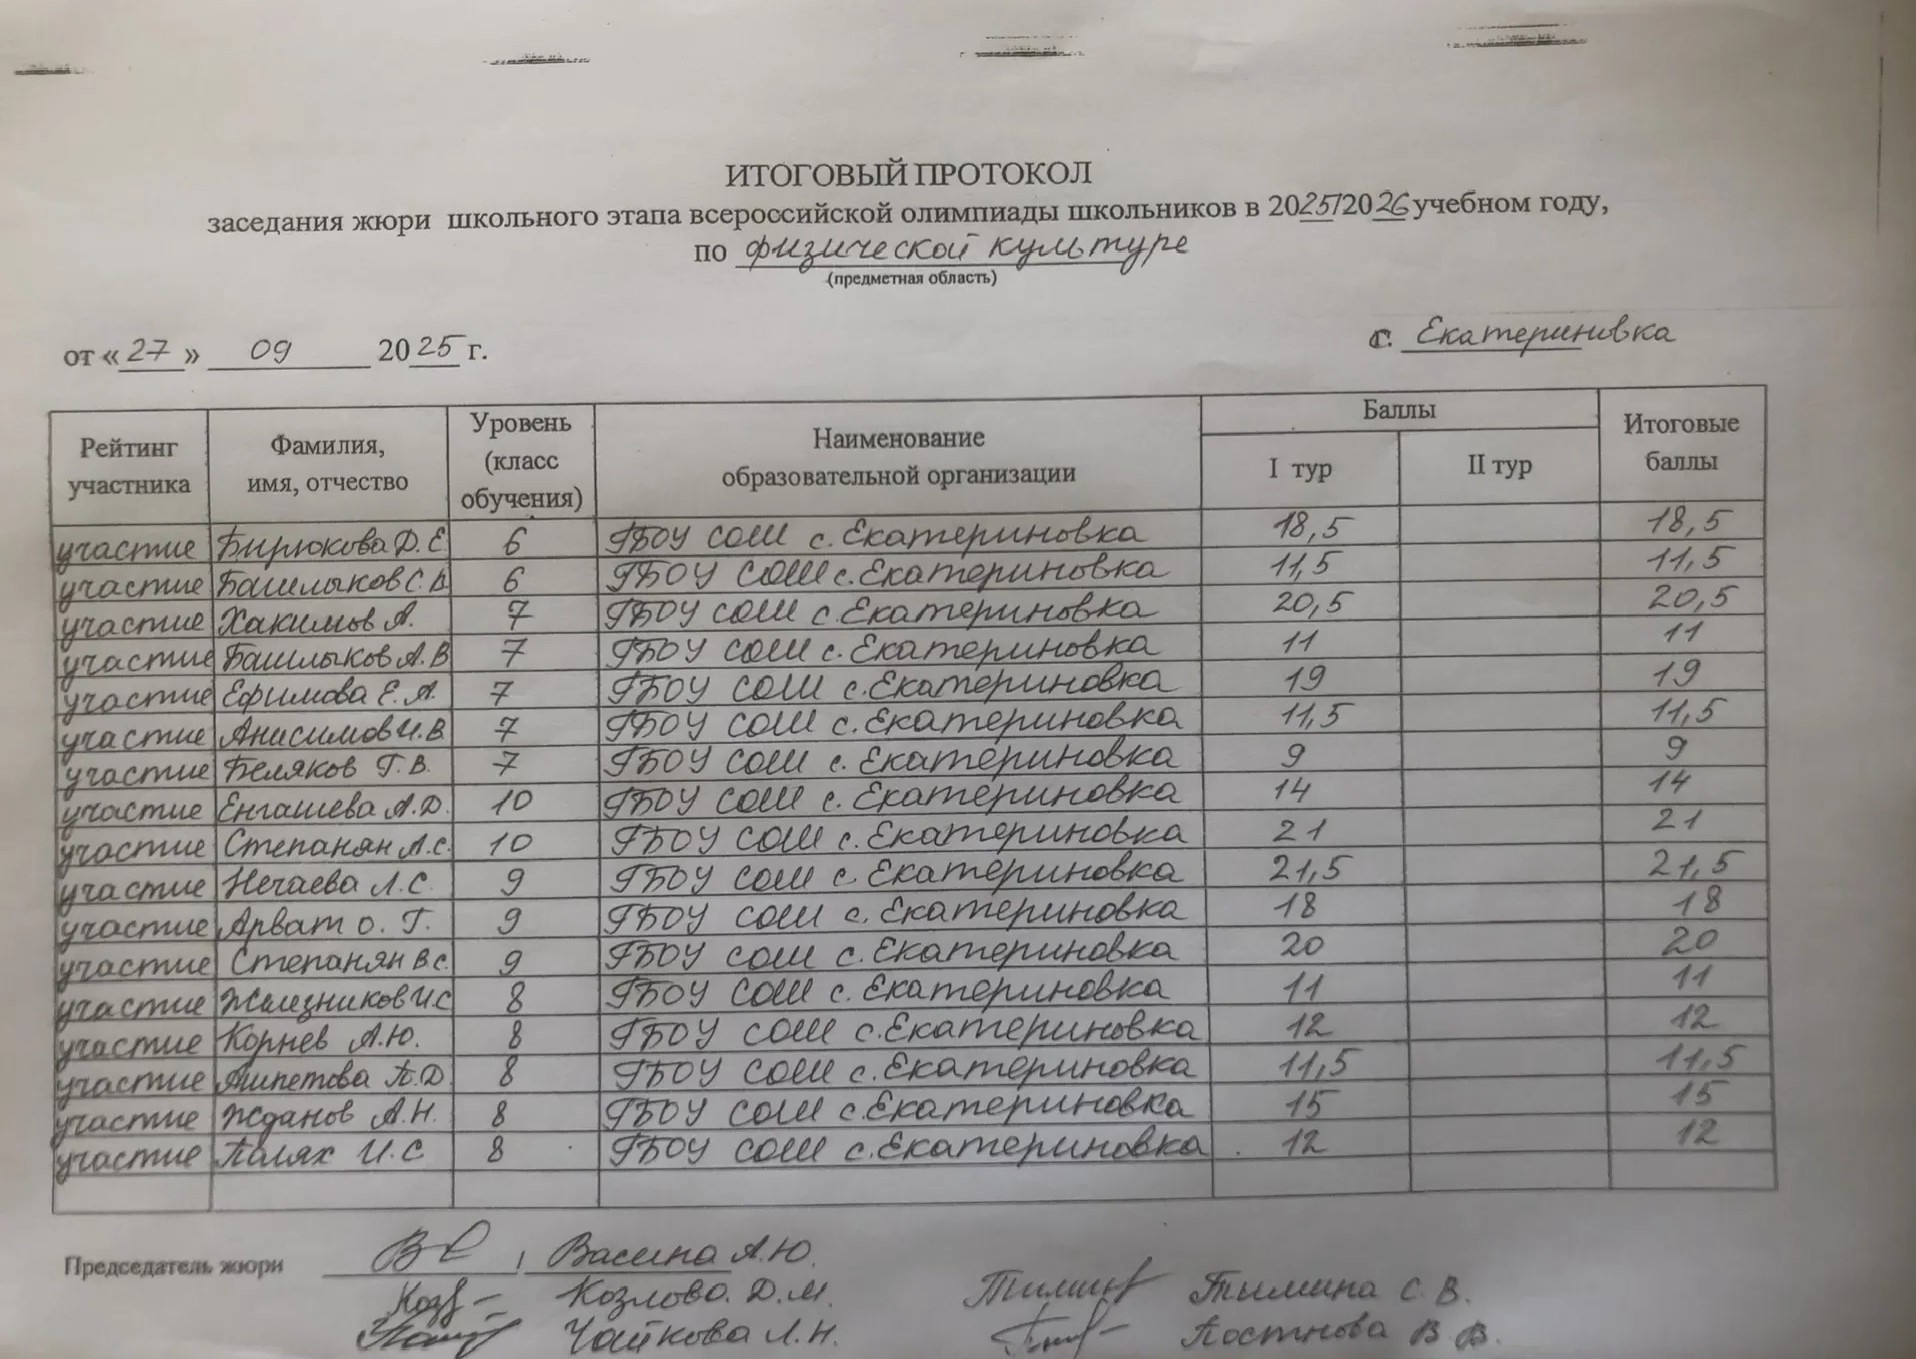 ИТОГОВЫЙ ПРОТОКОЛ
заседания жюри школьного этапа всероссийской олимпиады школьников в 2025/2026 учебном году,
по физической культуре
(предметная область)
от «27» 09 2025 г.
с. Екатериновка
Рейтинг участника Фамилия, имя, отчество Уровень (класс обучения) Наименование образовательной организации Баллы I тур II тур Итоговые баллы
участие Бирюкова Д. Е 6 ГБОУ СОШ с. Екатериновка 18,5 18,5
участие Башлыков С. 6 ГБОУ СОШ с. Екатериновка 11,5 11,5
участие Хакимов А. 7 ГБОУ СОШ с. Екатериновка 20,5 20,5
участие Башлыков А. В 7 ГБОУ СОШ с. Екатериновка 11 11
участие Ефимова Е. А. 7 ГБОУ СОШ с. Екатериновка 19 19
участие Анисимов И. В 7 ГБОУ СОШ с. Екатериновка 11,5 11,5
участие Беляков Г. В. 7 ГБОУ СОШ с. Екатериновка 9 9
участие Енгашева А. Д. 10 ГБОУ СОШ с. Екатериновка 14 14
участие Степанян А.с. 10 ГБОУ СОШ с. Екатериновка 21 21
участие Нечаева Л. С. 9 ГБОУ СОШ с. Екатериновка 21,5 21,5
участие Арват О. Г. 9 ГБОУ СОШ с. Екатериновка 18 18
участие Степанян В с. 9 ГБОУ СОШ с. Екатериновка 20 20
участие Железников И.С 8 ГБОУ СОШ с. Екатериновка 11 11
участие Корнев А.Ю. 8 ГБОУ СОШ с. Екатериновка 12 12
участие П.Д 8 ГБОУ СОШ с. Екатериновка 11,5 11,5
участие Жданов А.Н. 8 ГБОУ СОШ с. Екатериновка 15 15
участие Палях И. С 8 ГБОУ СОШ с. Екатериновка 12 12
Председатель жюри Васина А.Ю.
Козлова. Д.М. Тымина С. В.
Чайкова Л.Н. Постнова В. В.